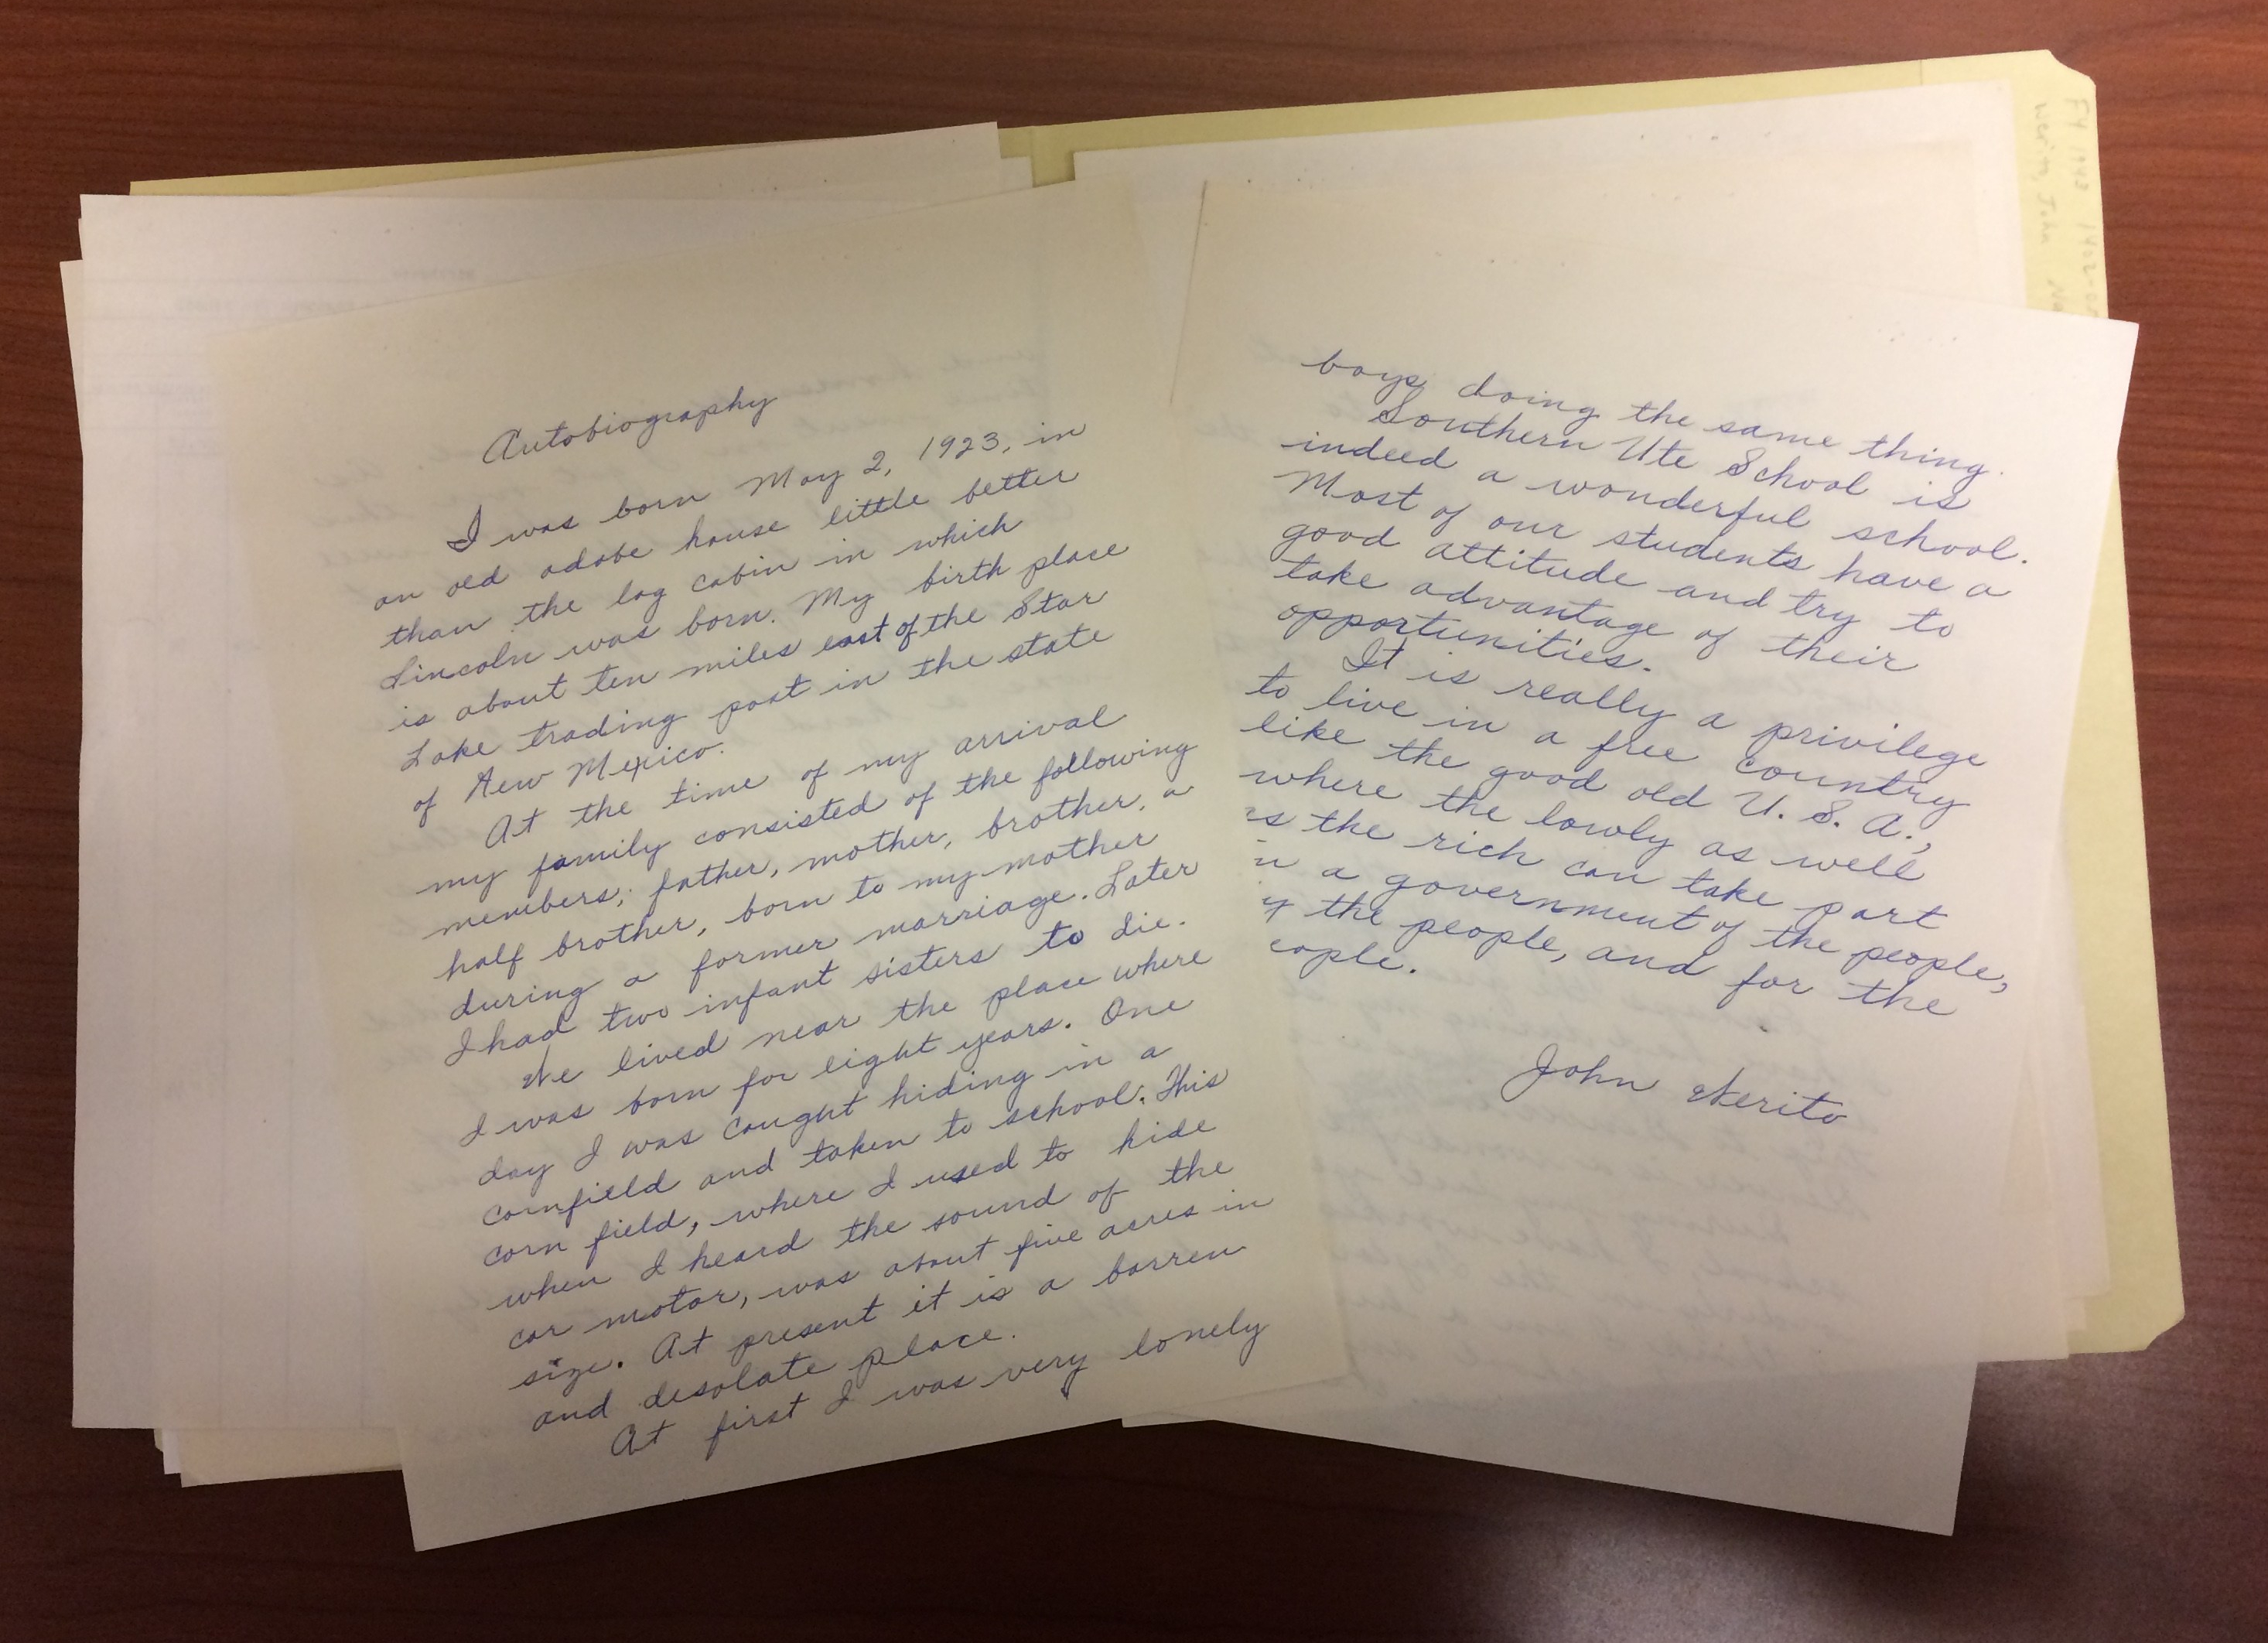 Autobiography
I was born May 2, 1923, in
an old adobe house little better
than the log cabin in which
Lincoln was born. My birth place
is about ten miles east of the Star
Lake trading post in the state
of New Mexico.
At the time of my arrival
my family consisted of the following
members; father, mother, brother, a
half brother, born to my mother
during a former marriage. Later
I had two infant sisters to die.
We lived near the place where
I was born for eight years. One
day I was caught hiding in a
cornfield and taken to school. This
corn field, where I used to hide
when I heard the sound of the
car motor, was about five acres in
size. At present it is a barren
and desolate place.
At first I was very lonely
boys doing the same thing.
Southern Ute School is
indeed a wonderful school.
Most of our students have a
good attitude and try to
take advantage of their
opportunities.
It is really a privilege
to live in a free country
like the good old U. S. A.,
where the lowly as well
as the rich can take part
in a government of the people,
the people, and for the
eople.
John Werito
FY 1943
Werito, John